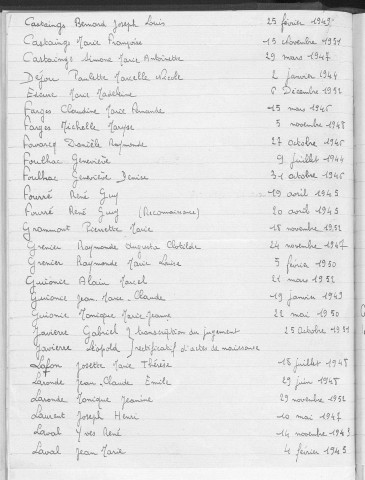 Castaings Bernard Joseph Louis 25 février 1949
Castaings Marie Françoise 13 Novembre 1951
Castaings Simone Marie Antoinette 29 mars 1947
Déjou Paulette Marcelle Nicole 2 janvier 1944
Marie Madeleine 6 Décembre 1952
Farges Claudine Marie Fernande 15 mars 1946
Farges Michelle Maryse 5 novembre 1948
Danièle Raymonde 27 octobre 1946
Foulhac Geneviève 9 juillet 1944
Foulhac Geneviève Denise 31 octobre 1946
Fourré René Guy 19 avril 1945
Fourré René Guy (Reconnaissance) 20 avril 1945
Grammont Pierrette Marie 18 novembre 1951
Grenier Raymonde Augusta Clotilde 24 novembre 1947
Grenier Raymonde Marie Louise 5 février 1950
Guionie Alain Marcel 21 mars 1952
Guionie Jean-Marie-Claude 19 janvier 1949
Guionie Monique Marie Jeanne 22 mai 1950
Javierre Gabriel } transcription du jugement 25 Octobre 1951
Javierre Léopold } rectificatif d'actes de naissance
Lafon Josette Marie Thérèse 18 juillet 1948
Laronde Jean-Claude Emile 29 juin 1948
Laronde Monique Jeanine 29 novembre 1952
Laurent Joseph Henri 10 mai 1947
Laval Yves René 14 novembre 1949
Laval Jean Marie 4 février 1945